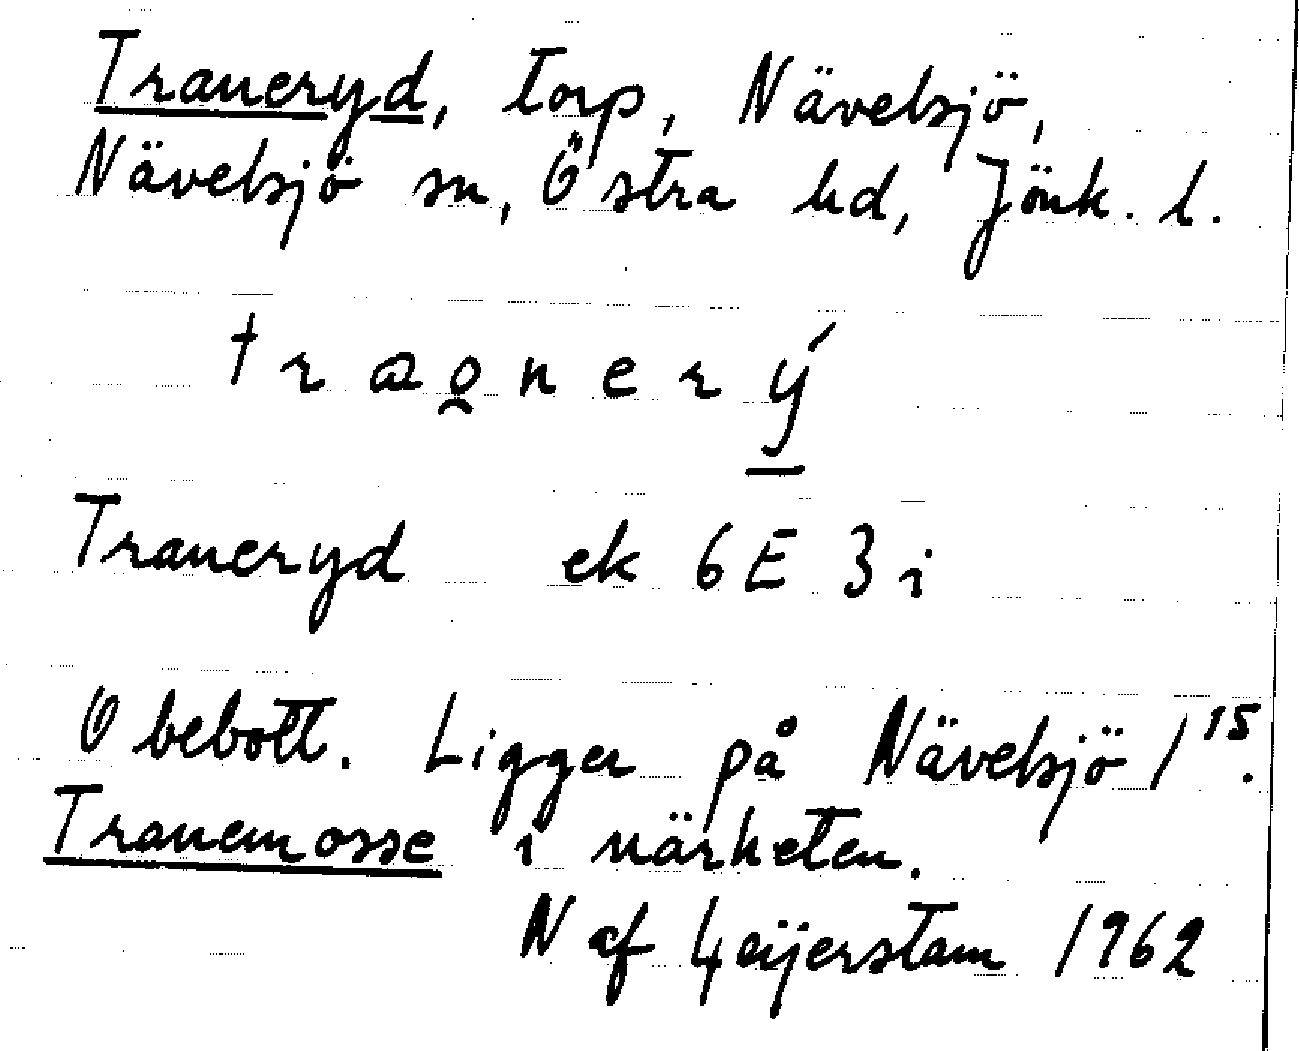 Traneryd, torp, Nävelsjö,
Nävelsjö sn, Östra hd, Jönk. l.
traonerý
Traneryd ek 6E 3i
Obebott. Ligger på Nävelsjö 1¹⁵.
Tranemosse i närheten.
N af Geijerstam 1962